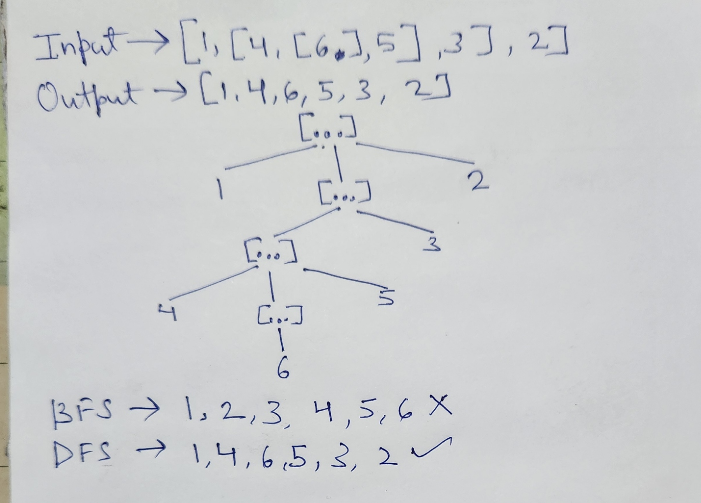 Input → [1, [4, [6], 5], 3], 2]
Output → [1, 4, 6, 5, 3, 2]
[...]
1
2
[...]
[...]
3
4
5
[..]
6
BFS → 1, 2, 3, 4, 5, 6 ✗
DFS → 1, 4, 6, 5, 3, 2 ✓